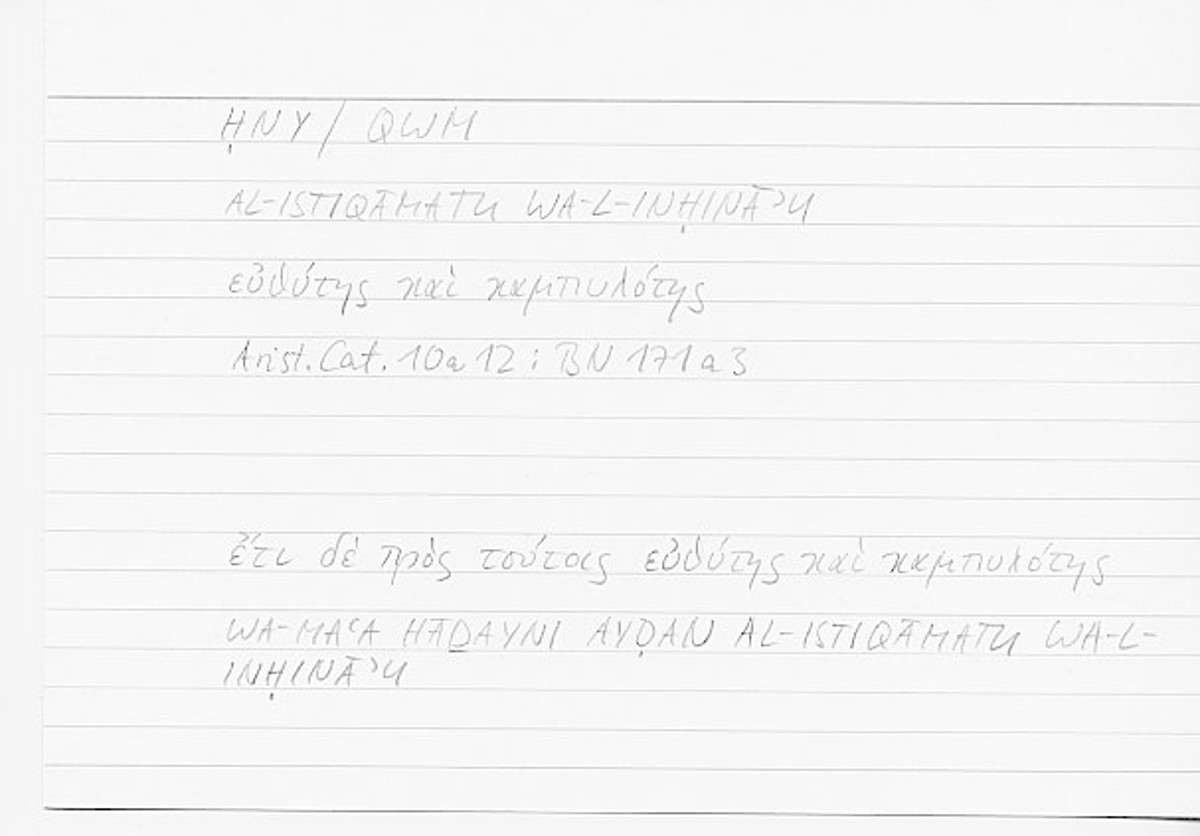 ḤNY / QWM
AL-ISTIQĀMATU WA-L-INḤINĀʾU
εὐθύτης καὶ καμπυλότης
Arist. Cat. 10a12; BN 171a3
ἔτι δὲ πρὸς τούτοις εὐθύτης καὶ καμπυλότης
WA-MAʿA HĀḎAYNI AYḌAN AL-ISTIQĀMATU WA-L-
INḤINĀʾU